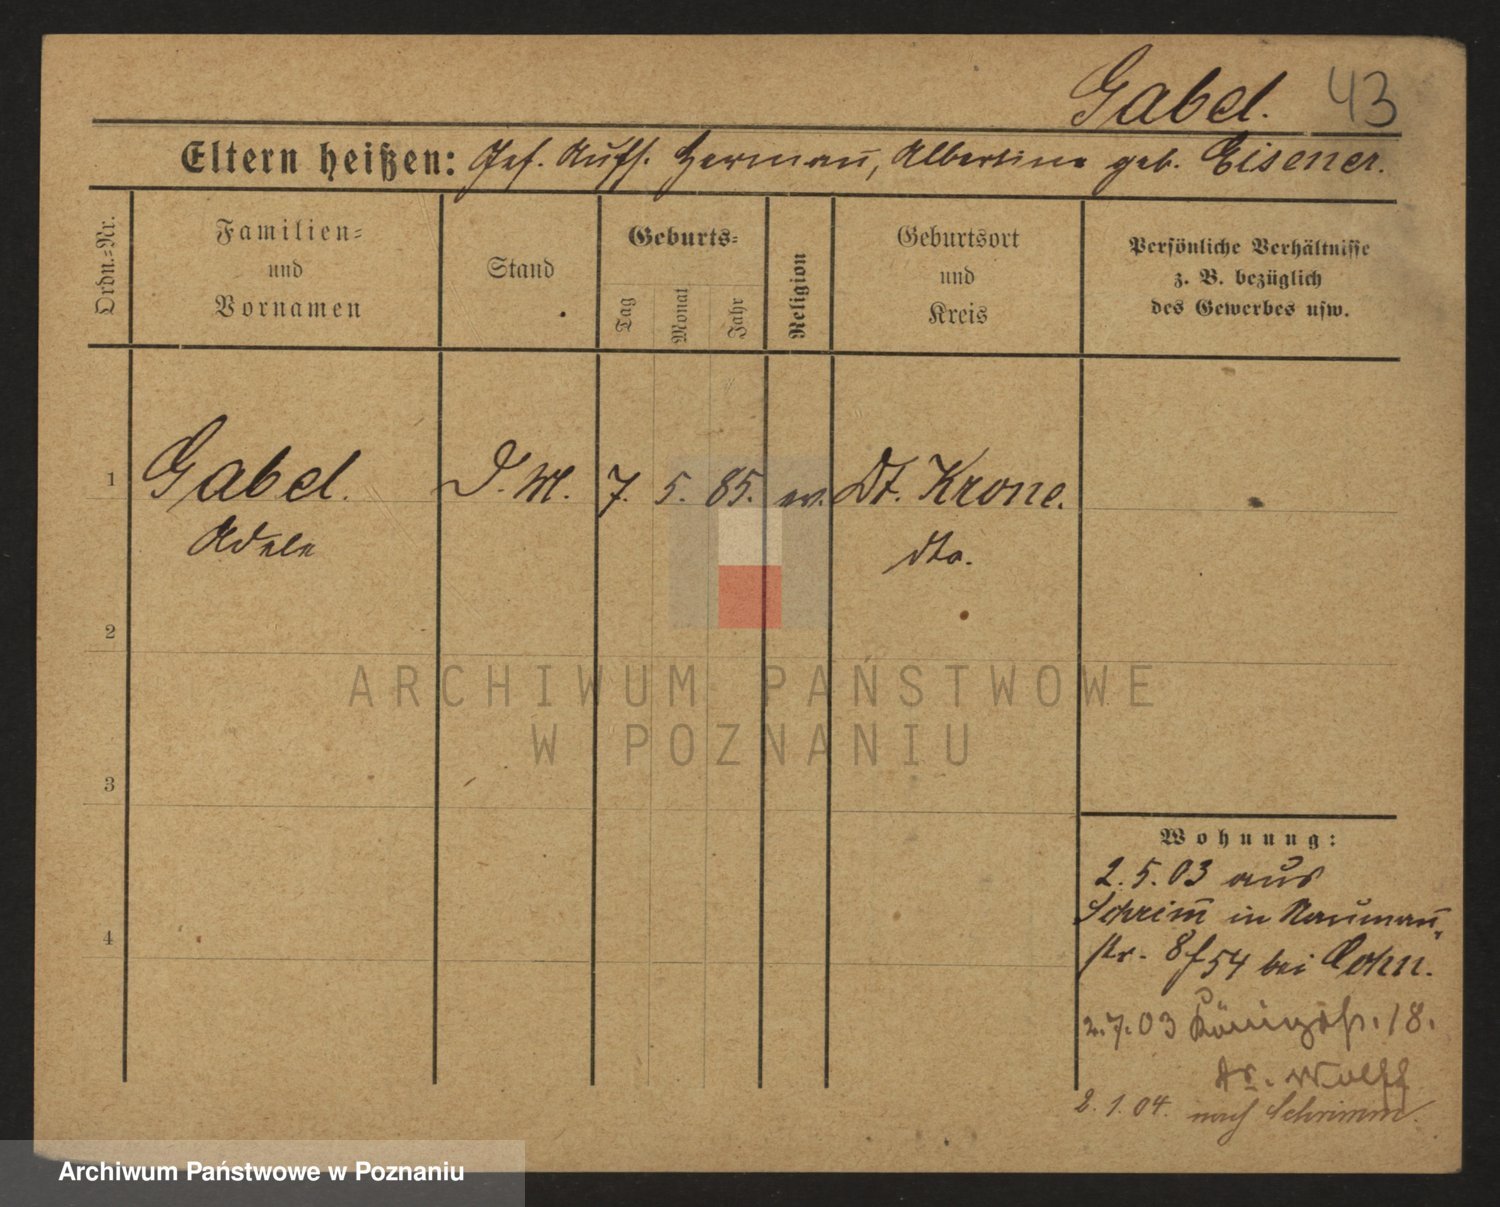 Gabel. 43
Eltern heißen: Gef. Aufs. Hermañ, Albertine geb. Eisener.
Ordn.-Nr.
Familien-
und
Vornamen
Stand
Geburts-
Tag
Monat
Jahr
Religion
Geburtsort
und
Kreis
Persönliche Verhältnisse
z. B. bezüglich
des Gewerbes usw.
1 Gabel. D. M. 7. 5. 85. ev. Dt. Krone.
Adele dto.
2
ARCHIWUM PAŃSTWOWE
W POZNANIU
3
Wohnung:
2.5.03 aus
Schrim̄ in Naumañ-
4
str. 8 54 bei Cohn.
2.7.03 Königstr. 18.
Dr. Wolff
2.1.04. nach Schrimm.
Archiwum Państwowe w Poznaniu